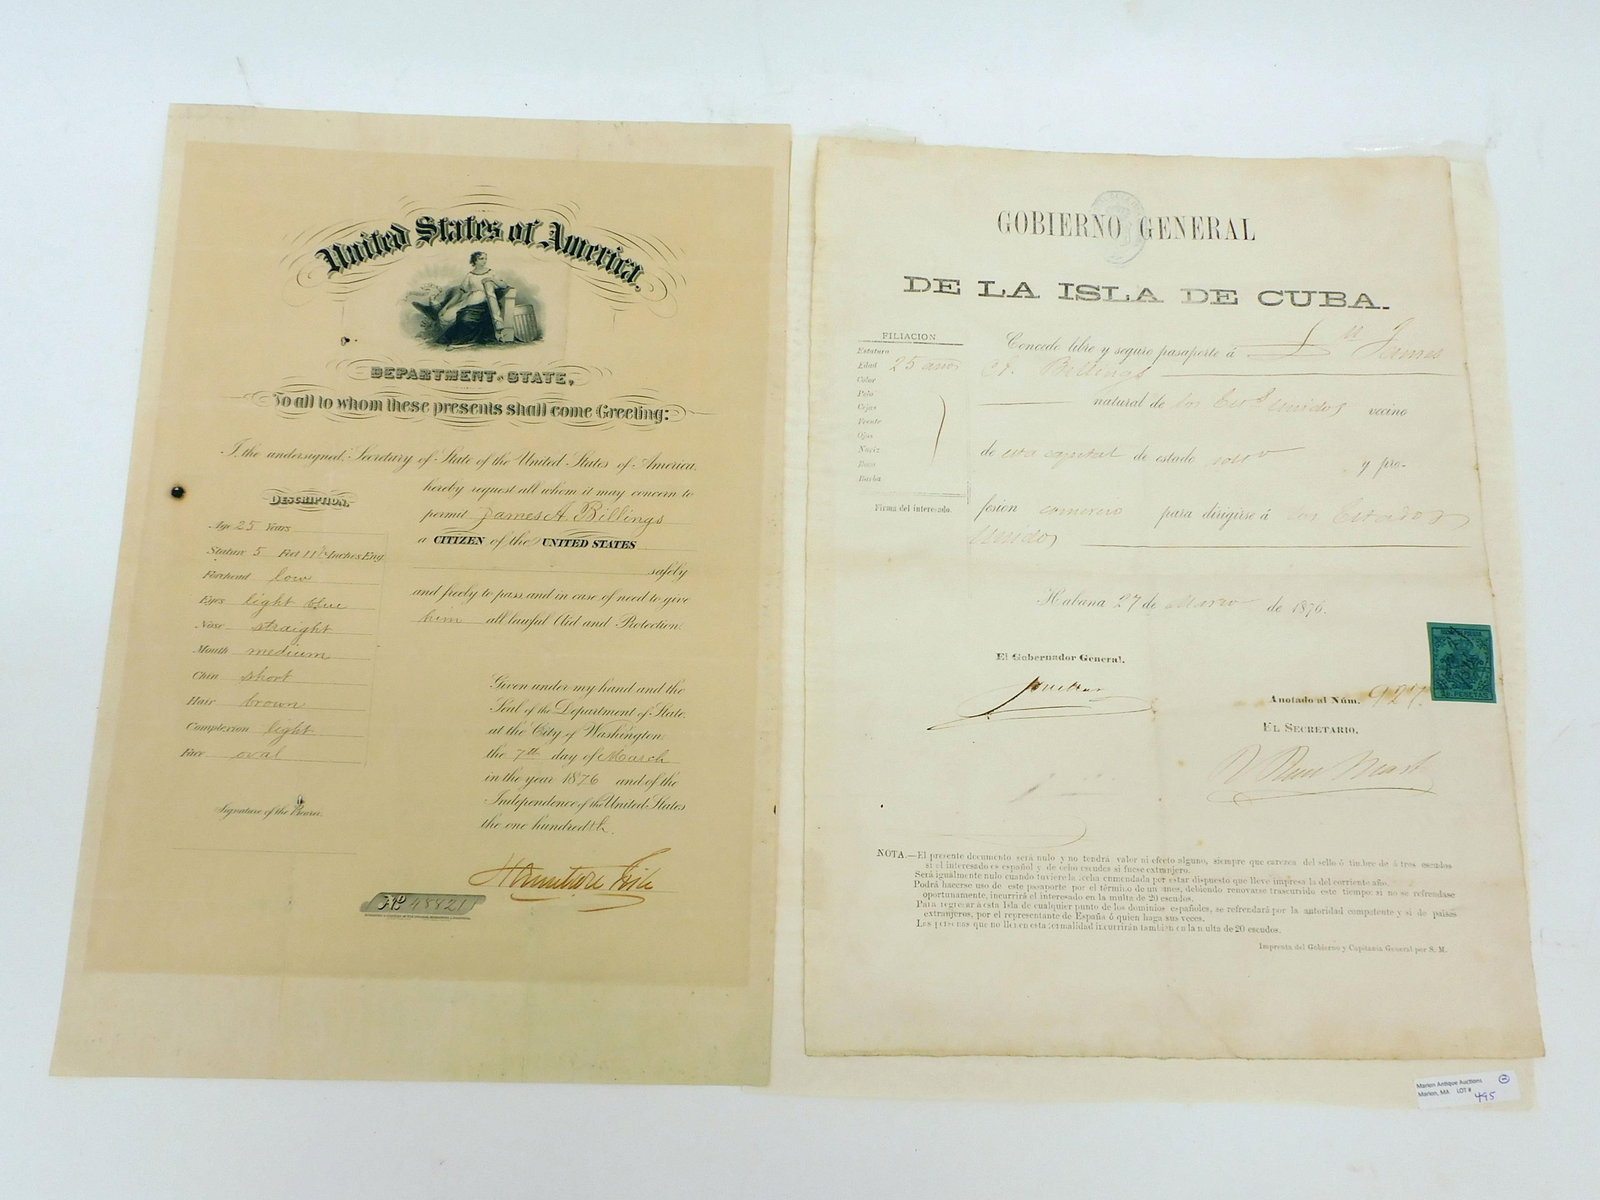 United States of America.
DEPARTMENT OF STATE,
To all to whom these presents shall come Greeting:
I, the undersigned, Secretary of State of the United States of America,
hereby request all whom it may concern to
permit James A. Billings
a CITIZEN of the UNITED STATES
safely
and freely to pass and in case of need to give
him all lawful Aid and Protection.
DESCRIPTION.
Age 25 Years
Stature 5 Feet 11 Inches Eng.
Forehead low
Eyes light blue
Nose straight
Mouth medium
Chin short
Hair brown
Complexion light
Face oval
Signature of the Bearer.
Given under my hand and the
Seal of the Department of State,
at the City of Washington
the 7th day of March
in the year 1876 and of the
Independence of the United States
the one hundredth.
Hamilton Fish
No 48821
GOBIERNO GENERAL
DE LA ISLA DE CUBA.
FILIACION
Estatura
Edad 25 años
Color
Pelo
Cejas
Frente
Ojos
Nariz
Boca
Barba
Firma del interesado.
Concedo libre y seguro pasaporte á Dn James
A. Billings
natural de los Estos Unidos vecino
de esta capital de estado y pro-
fesion comercio para dirigirse á los Estados
Unidos
Habana 27 de Marzo de 1876.
El Gobernador General.
Anotado al Núm. 927.
EL SECRETARIO.
NOTA.—El presente documento será nulo y no tendrá valor ni efecto alguno, siempre que carezca del sello ó timbre de á tres escudos
si el interesado es español y de ocho escudos si fuese extranjero.
Será igualmente nulo cuando tuviere la fecha enmendada por estar dispuesto que lleve impresa la del corriente año.
Podrá hacerse uso de este pasaporte por el término de un mes, debiendo renovarse trascurrido este tiempo: si no se refrendase
oportunamente, incurrirá el interesado en la multa de 20 escudos.
Para regresar á esta Isla de cualquier punto de los dominios españoles, se refrendará por la autoridad competente y si de países
extranjeros, por el representante de España ó quien haga sus veces.
Las personas que no llenen esta formalidad incurrirán tambien en la multa de 20 escudos.
Imprenta del Gobierno y Capitanía General por S. M.
Marion Antique Auctions
Marion, MA LOT # 495